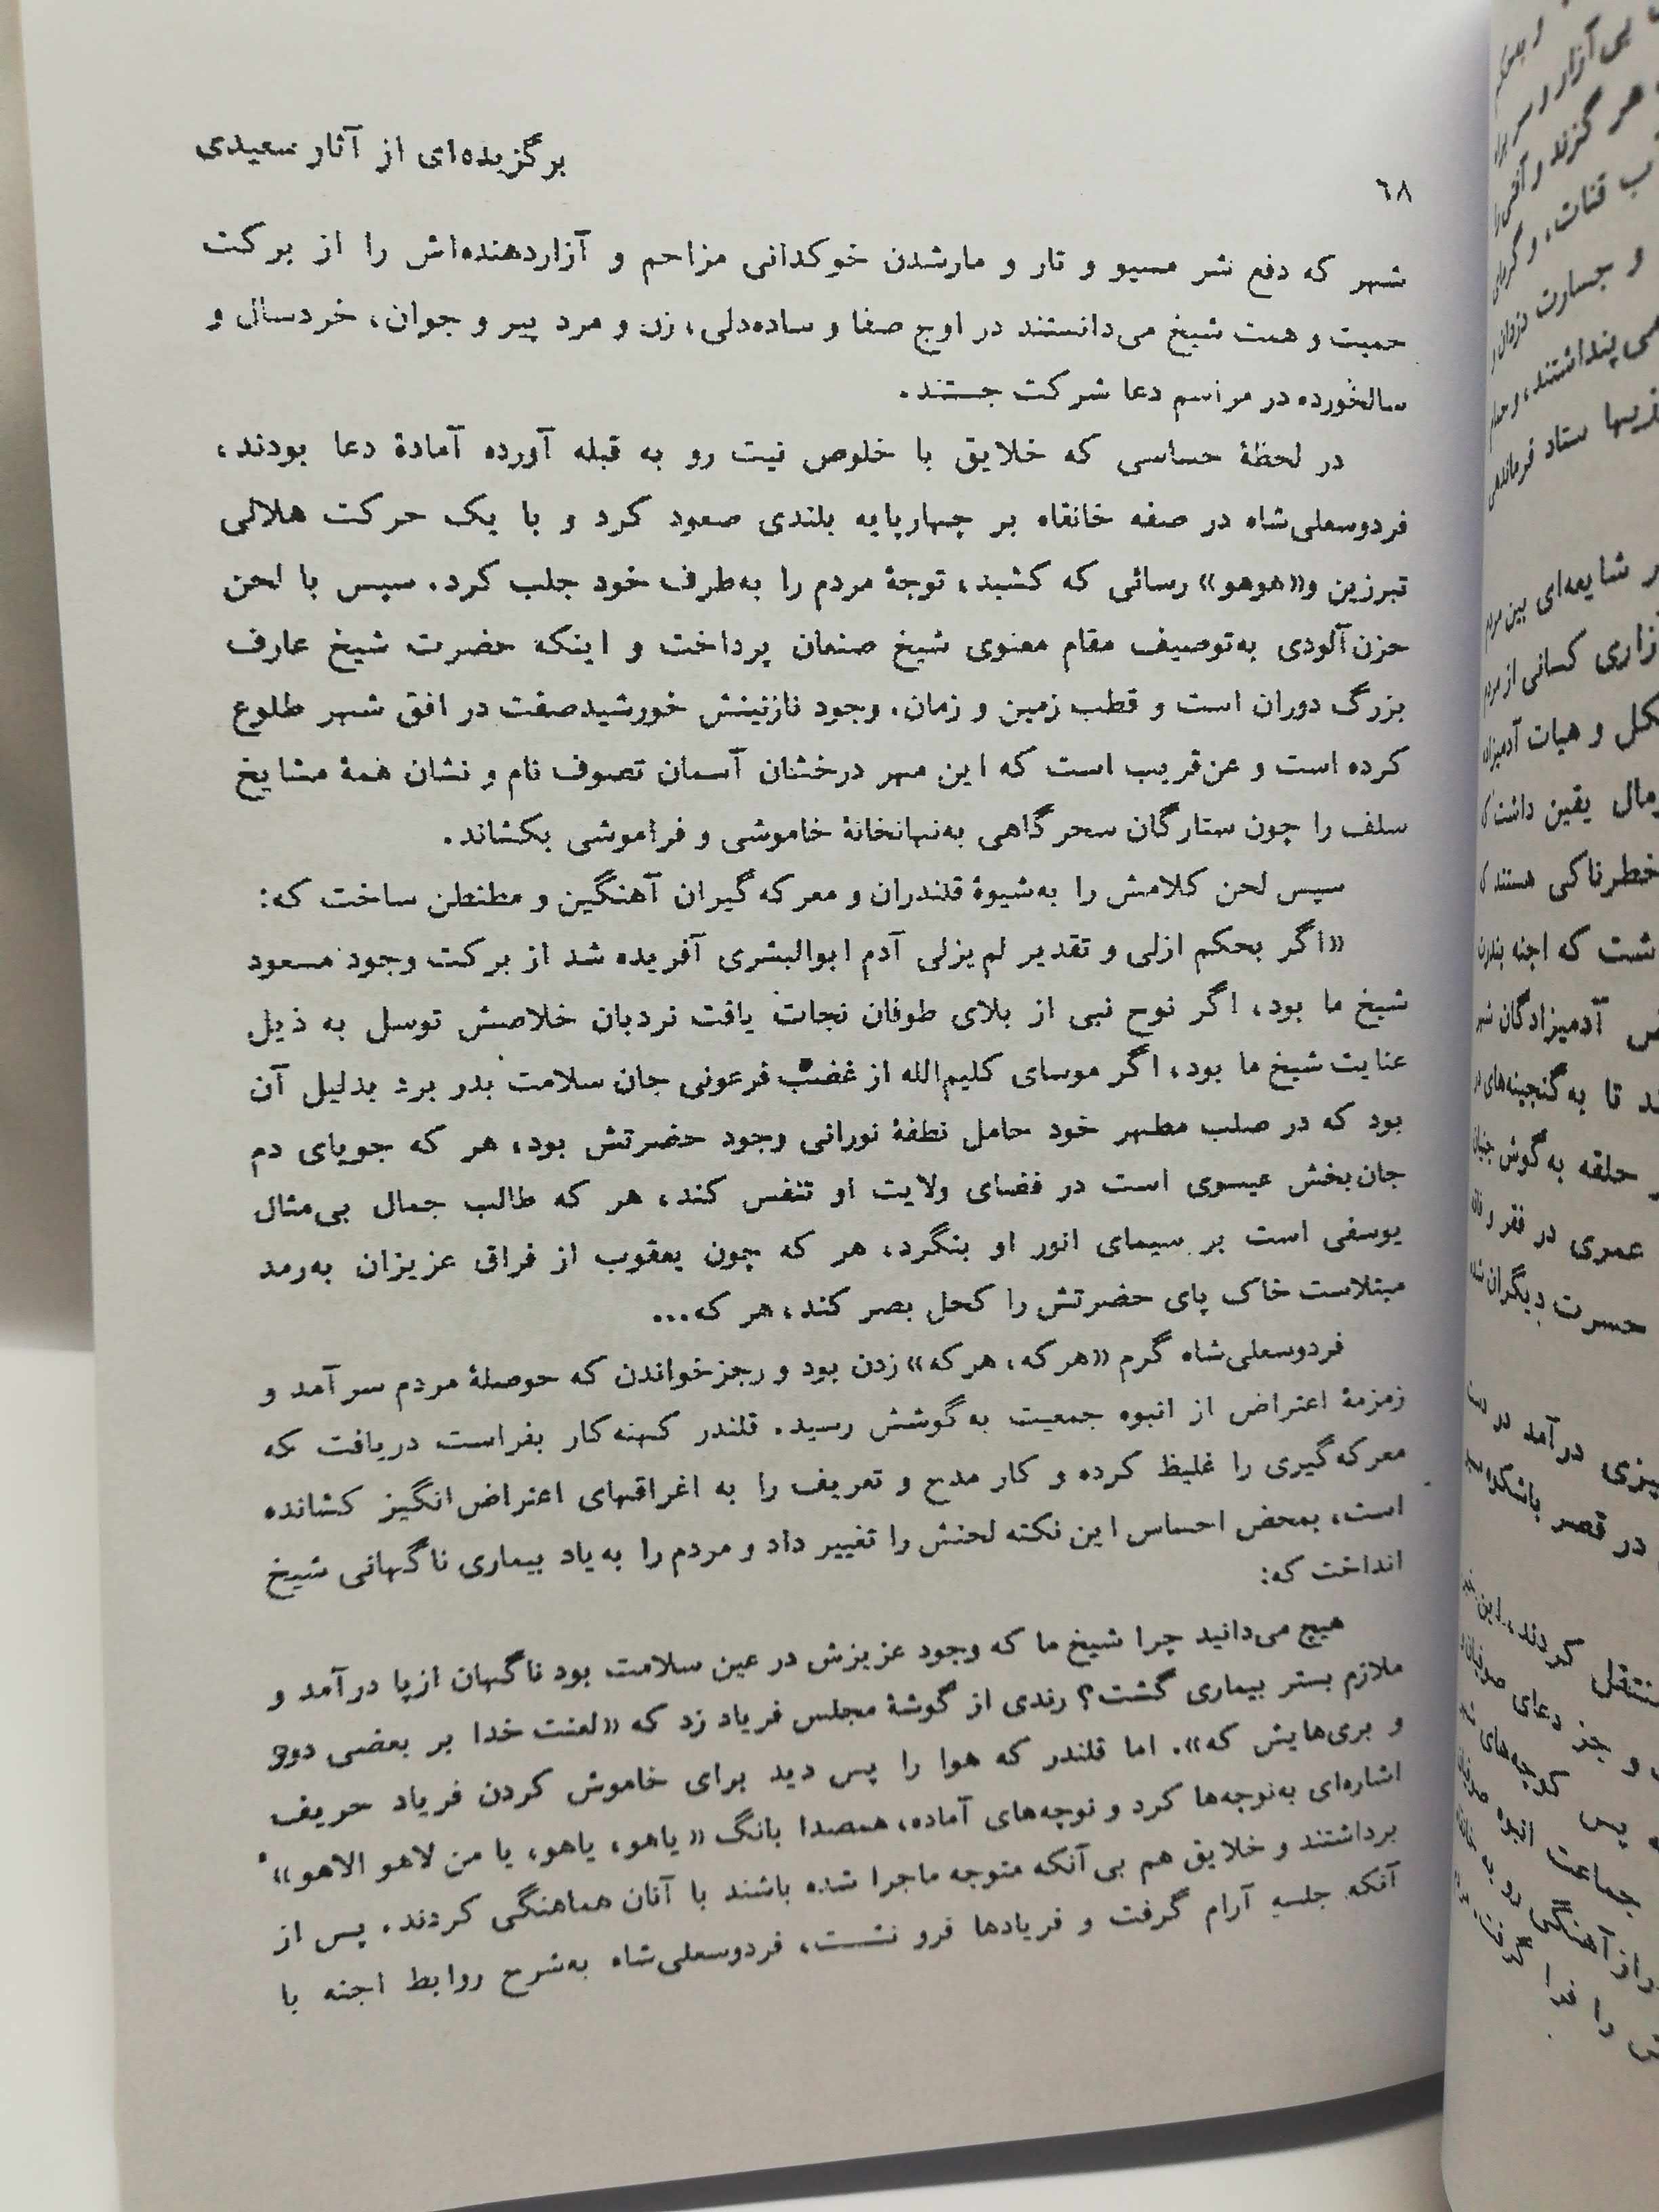 برگزیده‌ای از آثار سعیدی
٦٨
شهر که دفع شر مسیو و تار و مارشدن خوکدانی مزاحم و آزاردهنده‌اش را از برکت
حمیت و همت شیخ می‌دانستند در اوج صفا و ساده‌دلی، زن و مرد پیر و جوان، خردسال و
سالخورده در مراسم دعا شرکت جستند.
در لحظهٔ حساسی که خلایق با خلوص نیت رو به قبله آورده آمادهٔ دعا بودند،
فردوسعلی‌شاه در صفه خانقاه بر چهارپایه بلندی صعود کرد و با یک حرکت هلالی
تبرزین و«هوهو» رسائی که کشید، توجهٔ مردم را به‌طرف خود جلب کرد. سپس با لحن
حزن‌آلودی به‌توصیف مقام معنوی شیخ صنعان پرداخت و اینکه حضرت شیخ عارف
بزرگ دوران است و قطب زمین و زمان. وجود نازنینش خورشیدصفت در افق شهر طلوع
کرده است و عن‌قریب است که این مهر درخشان آسمان تصوف نام و نشان همهٔ مشایخ
سلف را چون ستارگان سحرگاهی به‌نهانخانهٔ خاموشی و فراموشی بکشاند.
سپس لحن کلامش را به‌شیوهٔ قلندران و معرکه‌گیران آهنگین و مطنطن ساخت که:
«اگر بحکم ازلی و تقدیر لم‌یزلی آدم ابوالبشری آفریده شد از برکت وجود مسعود
شیخ ما بود، اگر نوح نبی از بلای طوفان نجات یافت نردبان خلاصش توسل به ذیل
عنایت شیخ ما بود، اگر موسای کلیم‌الله از غضب فرعونی جان سلامت بدر برد بدلیل آن
بود که در صلب مطهر خود حامل نطفهٔ نورانی وجود حضرتش بود، هر که جویای دم
جان‌بخش عیسوی است در فضای ولایت او تنفس کند، هر که طالب جمال بی‌مثال
یوسفی است بر سیمای انور او بنگرد، هر که چون یعقوب از فراق عزیزان به‌رمد
مبتلاست خاک پای حضرتش را کحل بصر کند، هر که...
فردوسعلی‌شاه گرم «هرکه، هرکه» زدن بود و رجزخواندن که حوصلهٔ مردم سرآمد و
زمزمهٔ اعتراض از انبوه جمعیت به‌گوشش رسید. قلندر کهنه‌کار بفراست دریافت که
معرکه‌گیری را غلیظ کرده و کار مدح و تعریف را به اغراقهای اعتراض‌انگیز کشانده
است، بمحض احساس این نکته لحنش را تغییر داد و مردم را به‌یاد بیماری ناگهانی شیخ
انداخت که:
هیچ می‌دانید چرا شیخ ما که وجود عزیزش در عین سلامت بود ناگهان ازپا درآمد و
ملازم بستر بیماری گشت؟ رندی از گوشهٔ مجلس فریاد زد که «لعنت خدا بر بعضی دور
و بری‌هایش که». اما قلندر که هوا را پس دید برای خاموش کردن فریاد حریف
اشاره‌ای به‌نوچه‌ها کرد و نوچه‌های آماده، همصدا بانگ «یاهو، یاهو، یا من لاهو الاهو»
برداشتند و خلایق هم بی‌آنکه متوجه ماجرا شده باشند با آنان هماهنگی کردند. پس از
آنکه جلسه آرام گرفت و فریادها فرو نشست، فردوسعلی‌شاه به‌شرح روابط اجنه با
بی‌آزار
هر گزند و
قنات، و
و جسارت دزدان
می‌پنداشتند،
ستاد فرماندهی
شایعه‌ای بین مردم
کسانی از مردم
و هیات آدمیزاد
یقین داشت
خطرناکی هستند
که اجنه
آدمیزادگان شهر
تا به گنجینه‌های
حلقه به گوش
عمری در فقر و
حسرت دیگران
درآمد
در قصر
کردند، این
و جز دعای
پس کوچه‌های
جماعت انبوه
را فدا